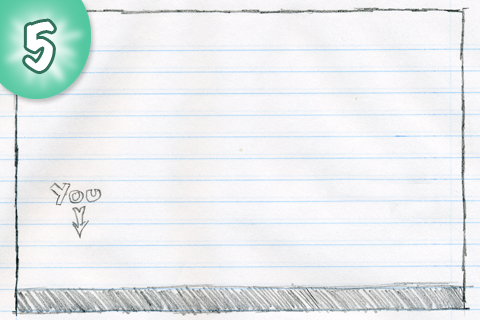 5
You